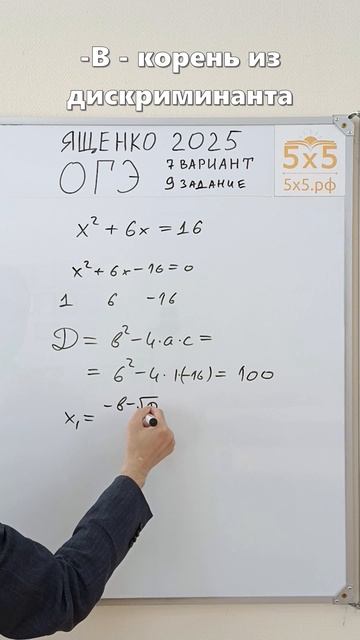 -В - корень из
дискриминанта
ЯЩЕНКО 2025
ОГЭ
7 ВАРИАНТ
9 ЗАДАНИЕ
5х5
5х5.рф
x² + 6x = 16
x² + 6x - 16 = 0
1 6 -16
D = b² - 4·a·c =
= 6² - 4·1·(-16) = 100
x₁ = -b - √D